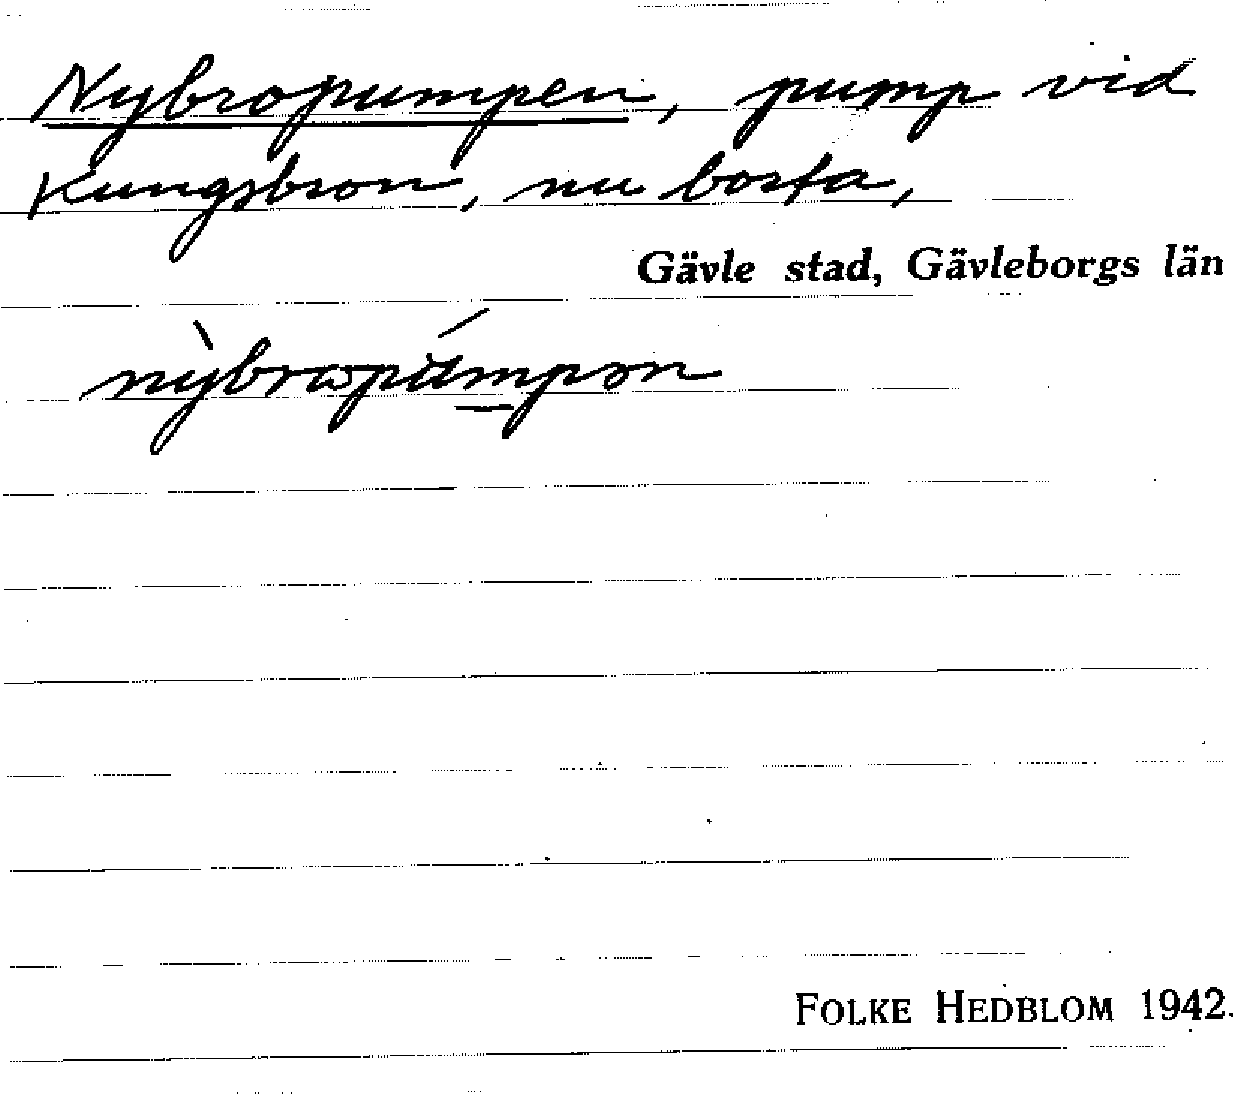 Nybropumpen, pump vid
Kungsbron, nu borta,
Gävle stad, Gävleborgs län
nỳbrωpúmpən
FOLKE HEDBLOM 1942.